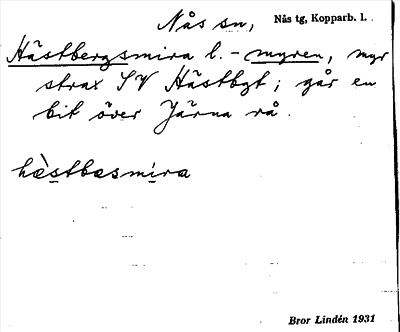 Nås sn, Nås tg, Kopparb. l.
Hästbergsmira l. -myren, myr
strax SV Hästbgt; går en
bit över Järna rå.
hæ̀stbæsmira
Bror Lindén 1931